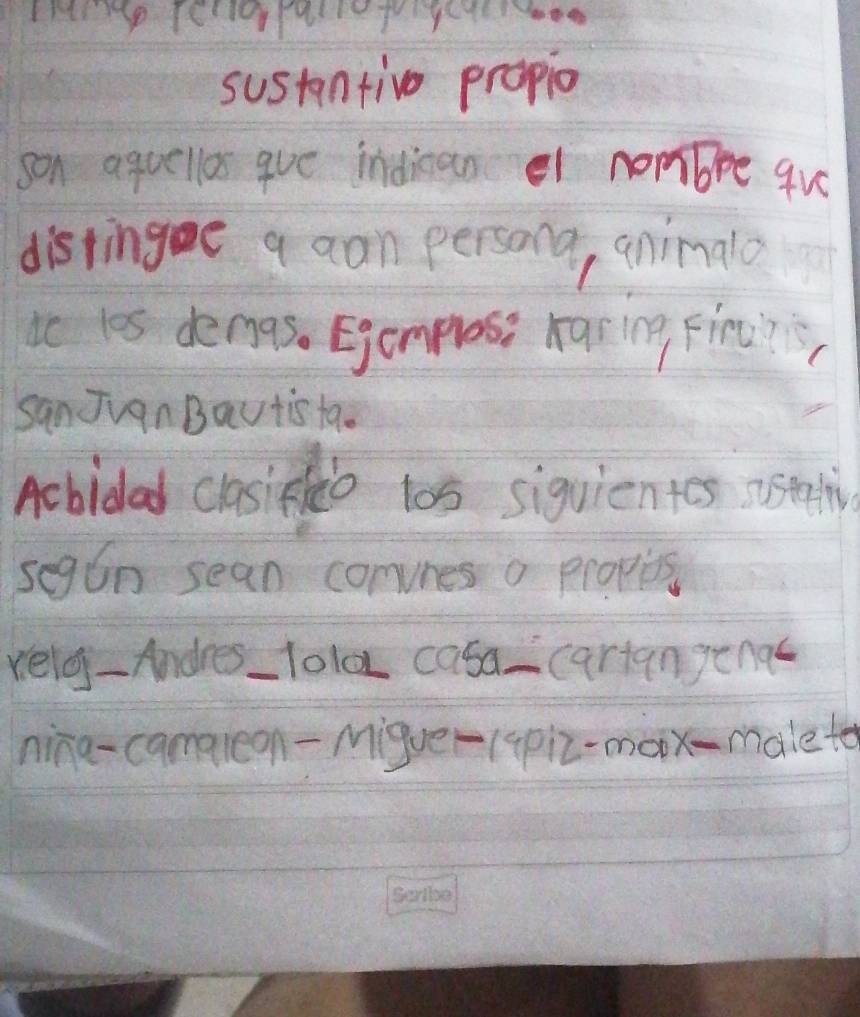 sustantivo propio
son aquellos que indican el nombre que
distingoe a aon persona, animalo
de los demas. Ejemplos: Karina, Firulais,
san Juan Bautista.
Acbidad clasifico los siguientes
según sean comunes o propios.
reloj - Andres - lola - casa - cartangena -
niña - camaleon - Miguel - lapiz - max - maleta
Scribe